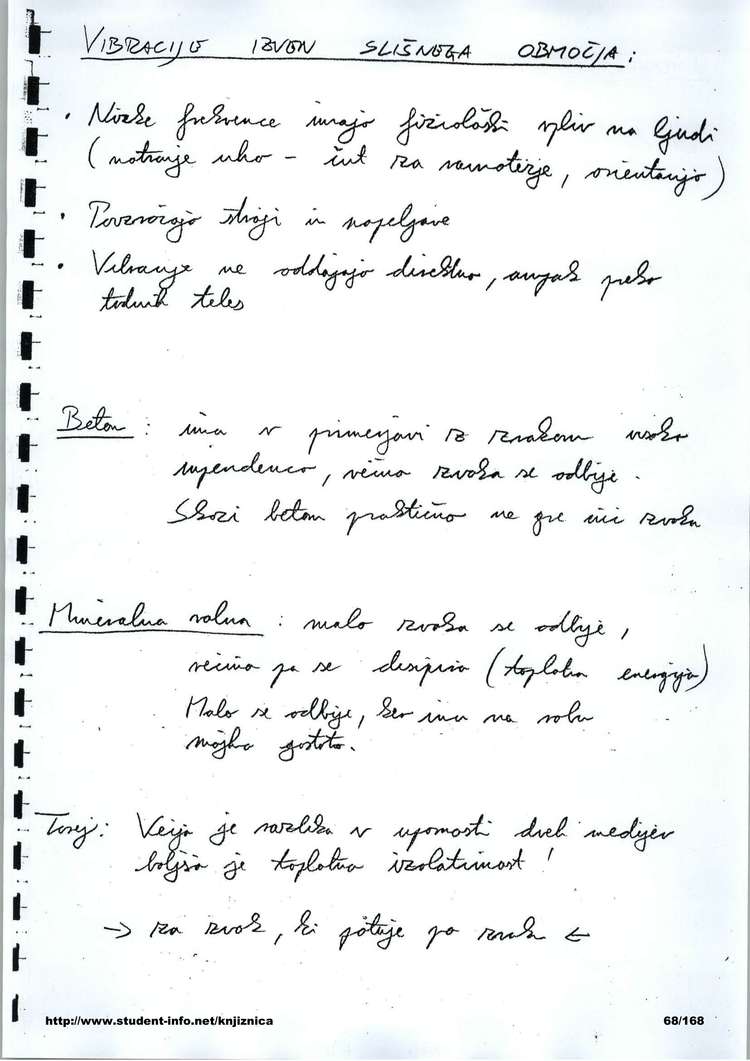 VIBRACIJE IZVEN SLIŠNEGA OBMOČJA:
• Nizke frekvence imajo fiziološki vpliv na ljudi
(notranje uho – čut za ravnotežje, orientacijo)
• Povzročajo stroji in napeljave
• Vibracije ne oddajajo direktno, ampak preko
trdnih teles
Beton: ima v primerjavi z zrakom visoko
impendenco, večina zvoka se odbije.
Skozi beton praktično ne gre nič zvoka
Mineralna volna: malo zvoka se odbije,
večina pa se disipira (toplotna energija)
Malo se odbije, ker ima na robu
majhno gostoto.
Torej: Večja je razlika v upornosti dveh medijev
boljša je toplotna izolativnost!
→ za zvok, ki potuje po zraku ←
http://www.student-info.net/knjiznica
68/168